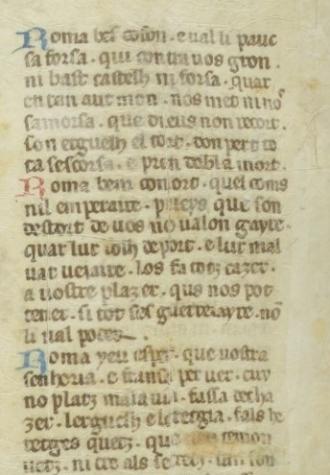 Roma bes cofon. e ual li pauc
sa forsa. qui contra uos gron.
ni bast castelh ni forsa. quar
en tan aut mon. nos met ni no
samorsa. que dieus non recort.
son erguelh el tort. don pert to
ta sescorsa. e pren dobla mort.
Roma bem conort. quel coms
nil emperaire. pueys que son
destort de uos no ualon gayre.
quar lur folh deport. e lur mal
uat ueiaire. los fa totz cazer.
a uostre plazer. que nos pot
tener. si tot ses guerreiayre. no
li ual poders.
Roma yeu esper. que uostra
senhoria. e fransa per uer. cuy
no platz mala uia. fassa decha
zer. lerguelh e leretgia. fals he
retges quetz. que non temon
uetz. ni cre als secretz. tan son